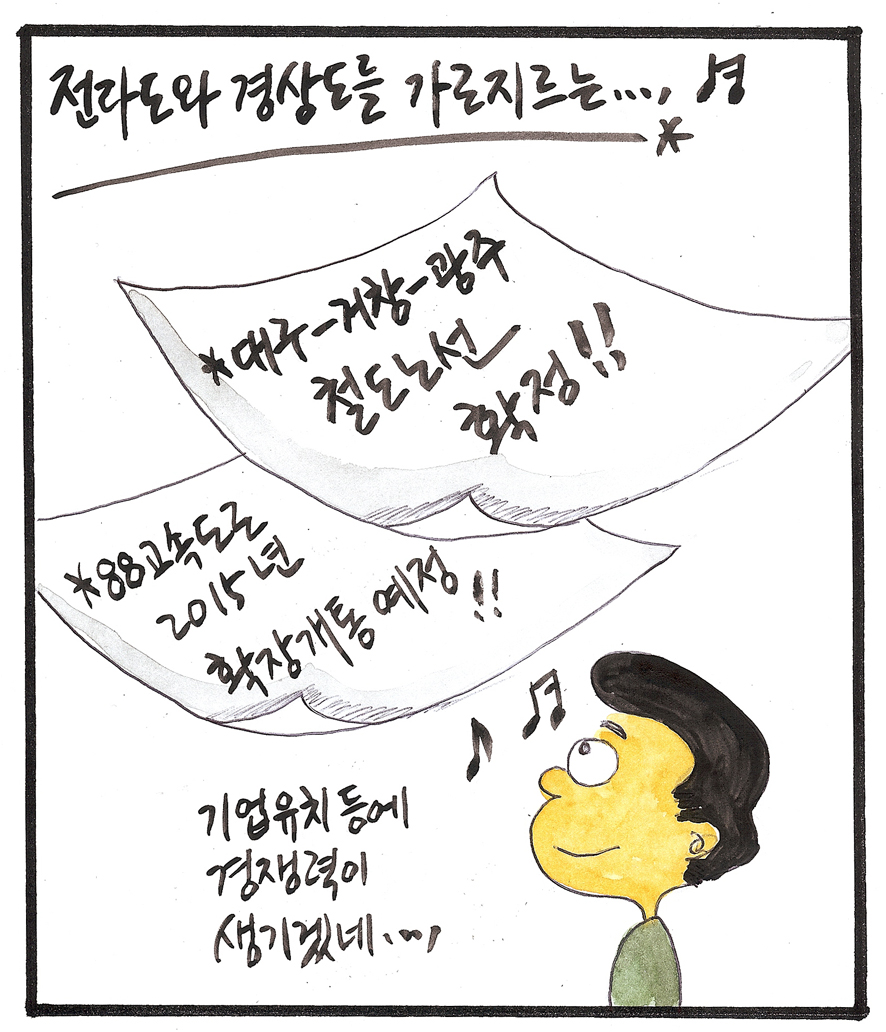 전라도와 경상도를 가로지르는...,
*
*대구-거창-광주
철도노선
확정!!
*88고속도로
2015년
확장개통 예정!!
기업유치 등에
경쟁력이
생기겠네...,